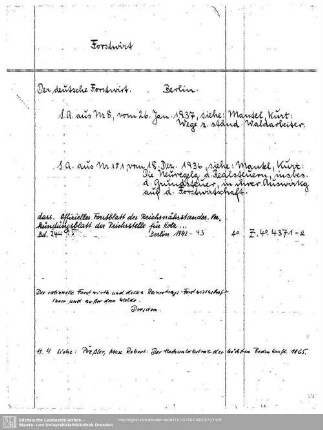 Forstwirt
Der deutsche Forstwirt. Berlin.
S.A. aus Nr 8, vom 26. Jan. 1937, siehe: Mantel, Kurt:
Wege z. ständ. Waldarbeiter.
S.A. aus Nr 101, vom 18. Dez. 1936, siehe: Mantel, Kurt:
Die Neuregelg d. Realsteuern, insbes.
d. Grundsteuer, in ihrer Auswirkg
auf d. Forstwirtschaft.
dass. Offizielles Forstblatt des Reichsnährstandes.
kündungsblatt der Reichsstelle für Holz...
Bd. 24 Berlin 1942-43 4° Z. 4°. 4371-a
Der rationelle Forstwirth und dessen Reinertrags-Forstwirthschaft
inner und außer dem Walde.
Dresden.
H. 4 siehe: Preßler, Max Robert: Der 1865.
Sächsische Landesbibliothek -
Staats- und Universitätsbibliothek Dresden